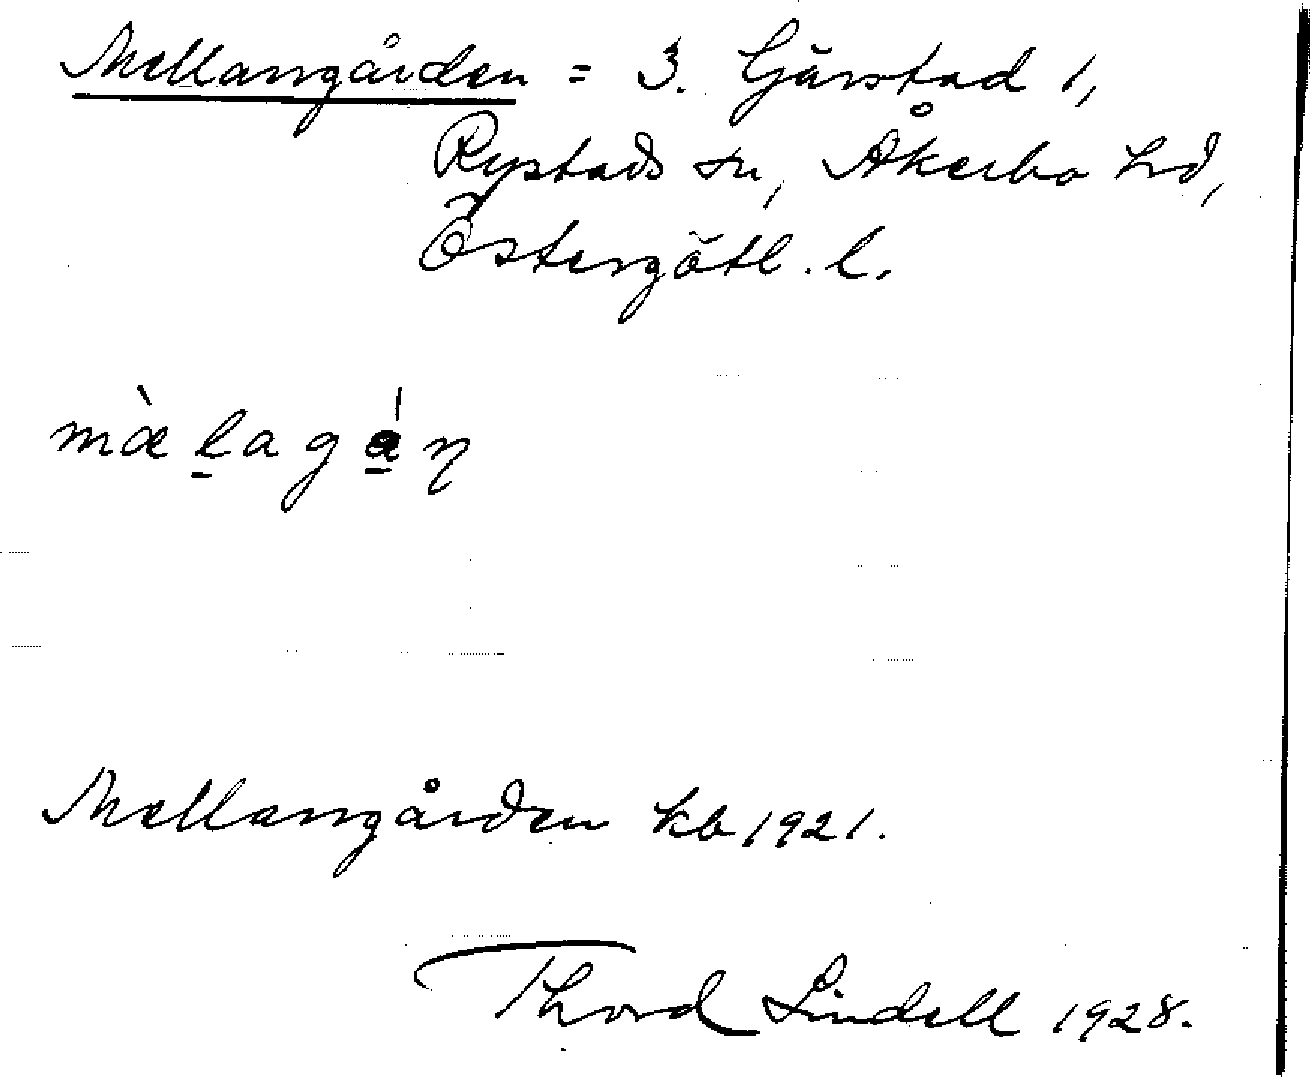 Mellangården = 3. Gärstad 1,
Rystads sn, Åkerbo hd,
Östergötl. l.
mæ̀l̠agá̠ṇ
Mellangården kb 1921.
Thord Lindell 1928.